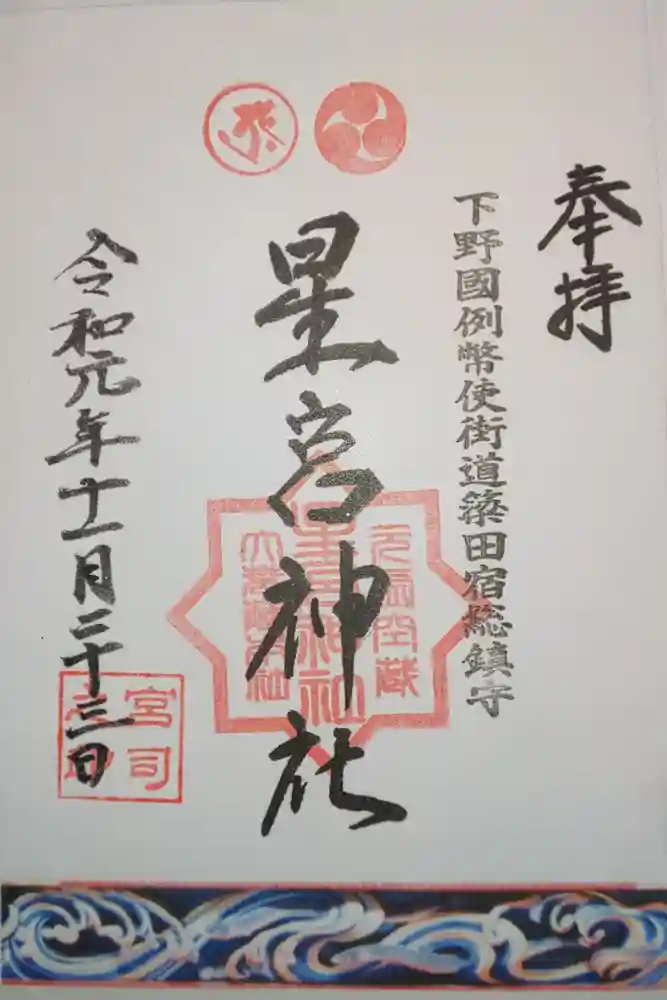 奉拝
下野國例幣使街道築田宿総鎮守
星宮神社
元虚空蔵
星宮神社
令和元年十一月二十三日
宮司